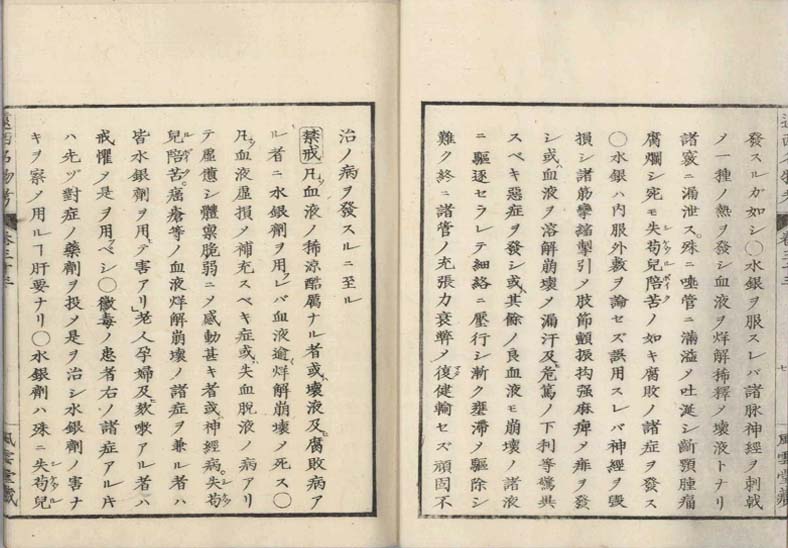 發スルガ如シ〇水銀ヲ服スレバ諸脉神經ヲ刺戟
ノ一種ノ熱ヲ發シ血液ヲ烊解稀釋メ壞液トナリ
諸竅ニ漏泄ス殊ニ唾管ニ滿溢メ吐涎シ齗顎腫痛
腐爛シ宛モ失苟兒陪苦ノ如キ腐敗ノ諸症ヲ發ス
〇水銀ハ内服外敷ヲ論セズ誤用スレバ神經ヲ
損シ諸筋攣縮掣引メ肢節顫振拘强麻痺メ痱ヲ發
シ或血液ヲ溶解崩壞メ漏汗及危篤ノ下利等驚具
スベキ惡症ヲ發シ或其餘ノ良血液モ崩壞ノ諸液
ニ驅逐セラレテ細絡ニ壓行シ漸ク壅滯メ驅除シ
難ク終ニ諸管ノ充張力衰弊メ復健輸セズ頑固不
七
風雲堂藏
治ノ病ヲ發スルニ至ル
禁戒凡血液ノ稀涼酷厲ナル者或壞液及腐敗病ア
ル者ニ水銀劑ヲ用フレバ血液逾烊解崩壞メ死ス〇
凡血液虛損メ補充スベキ症或失血脫液ノ病アリ
テ虛憊シ體禀脆弱ニメ感動甚キ者或神經病失苟
兒陪苦癌瘡等ノ血液烊解崩壞ノ諸症ヲ兼ル者ハ
皆水銀劑ヲ用テ害アリ老人孕婦及欬嗽アル者ハ
戒懼メ是ヲ用フベシ〇黴毒ノ患者右ノ諸症アル片
ハ先ヅ對症ノ藥劑ヲ投メ是ヲ治シ水銀劑ノ害ナ
キヲ察メ用ルヿ肝要ナリ〇水銀劑ハ殊ニ失苟兒
遠西名物考
卷三十三
風雲堂藏